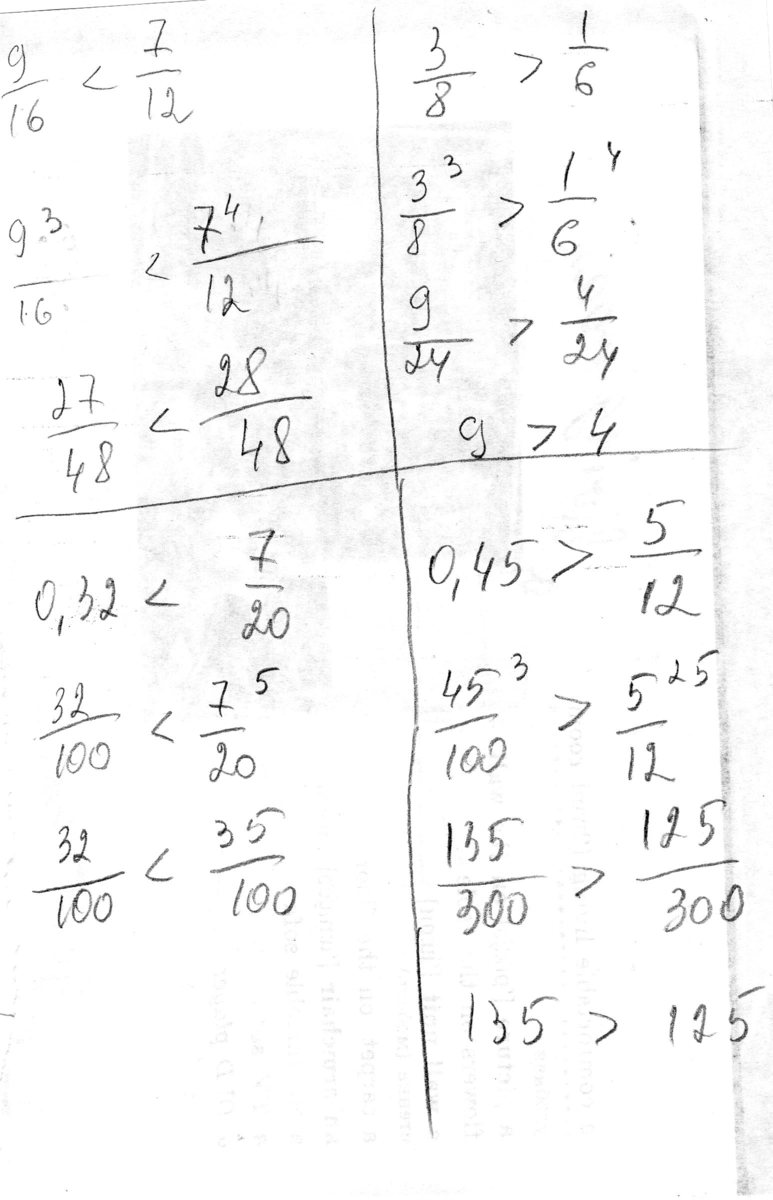 9/16 < 7/12
9³/16 < 7⁴/12
27/48 < 28/48
3/8 > 1/6
3³/8 > 1⁴/6
9/24 > 4/24
9 > 4
0,32 < 7/20
32/100 < 7⁵/20
32/100 < 35/100
0,45 > 5/12
45³/100 > 5²⁵/12
135/300 > 125/300
135 > 125